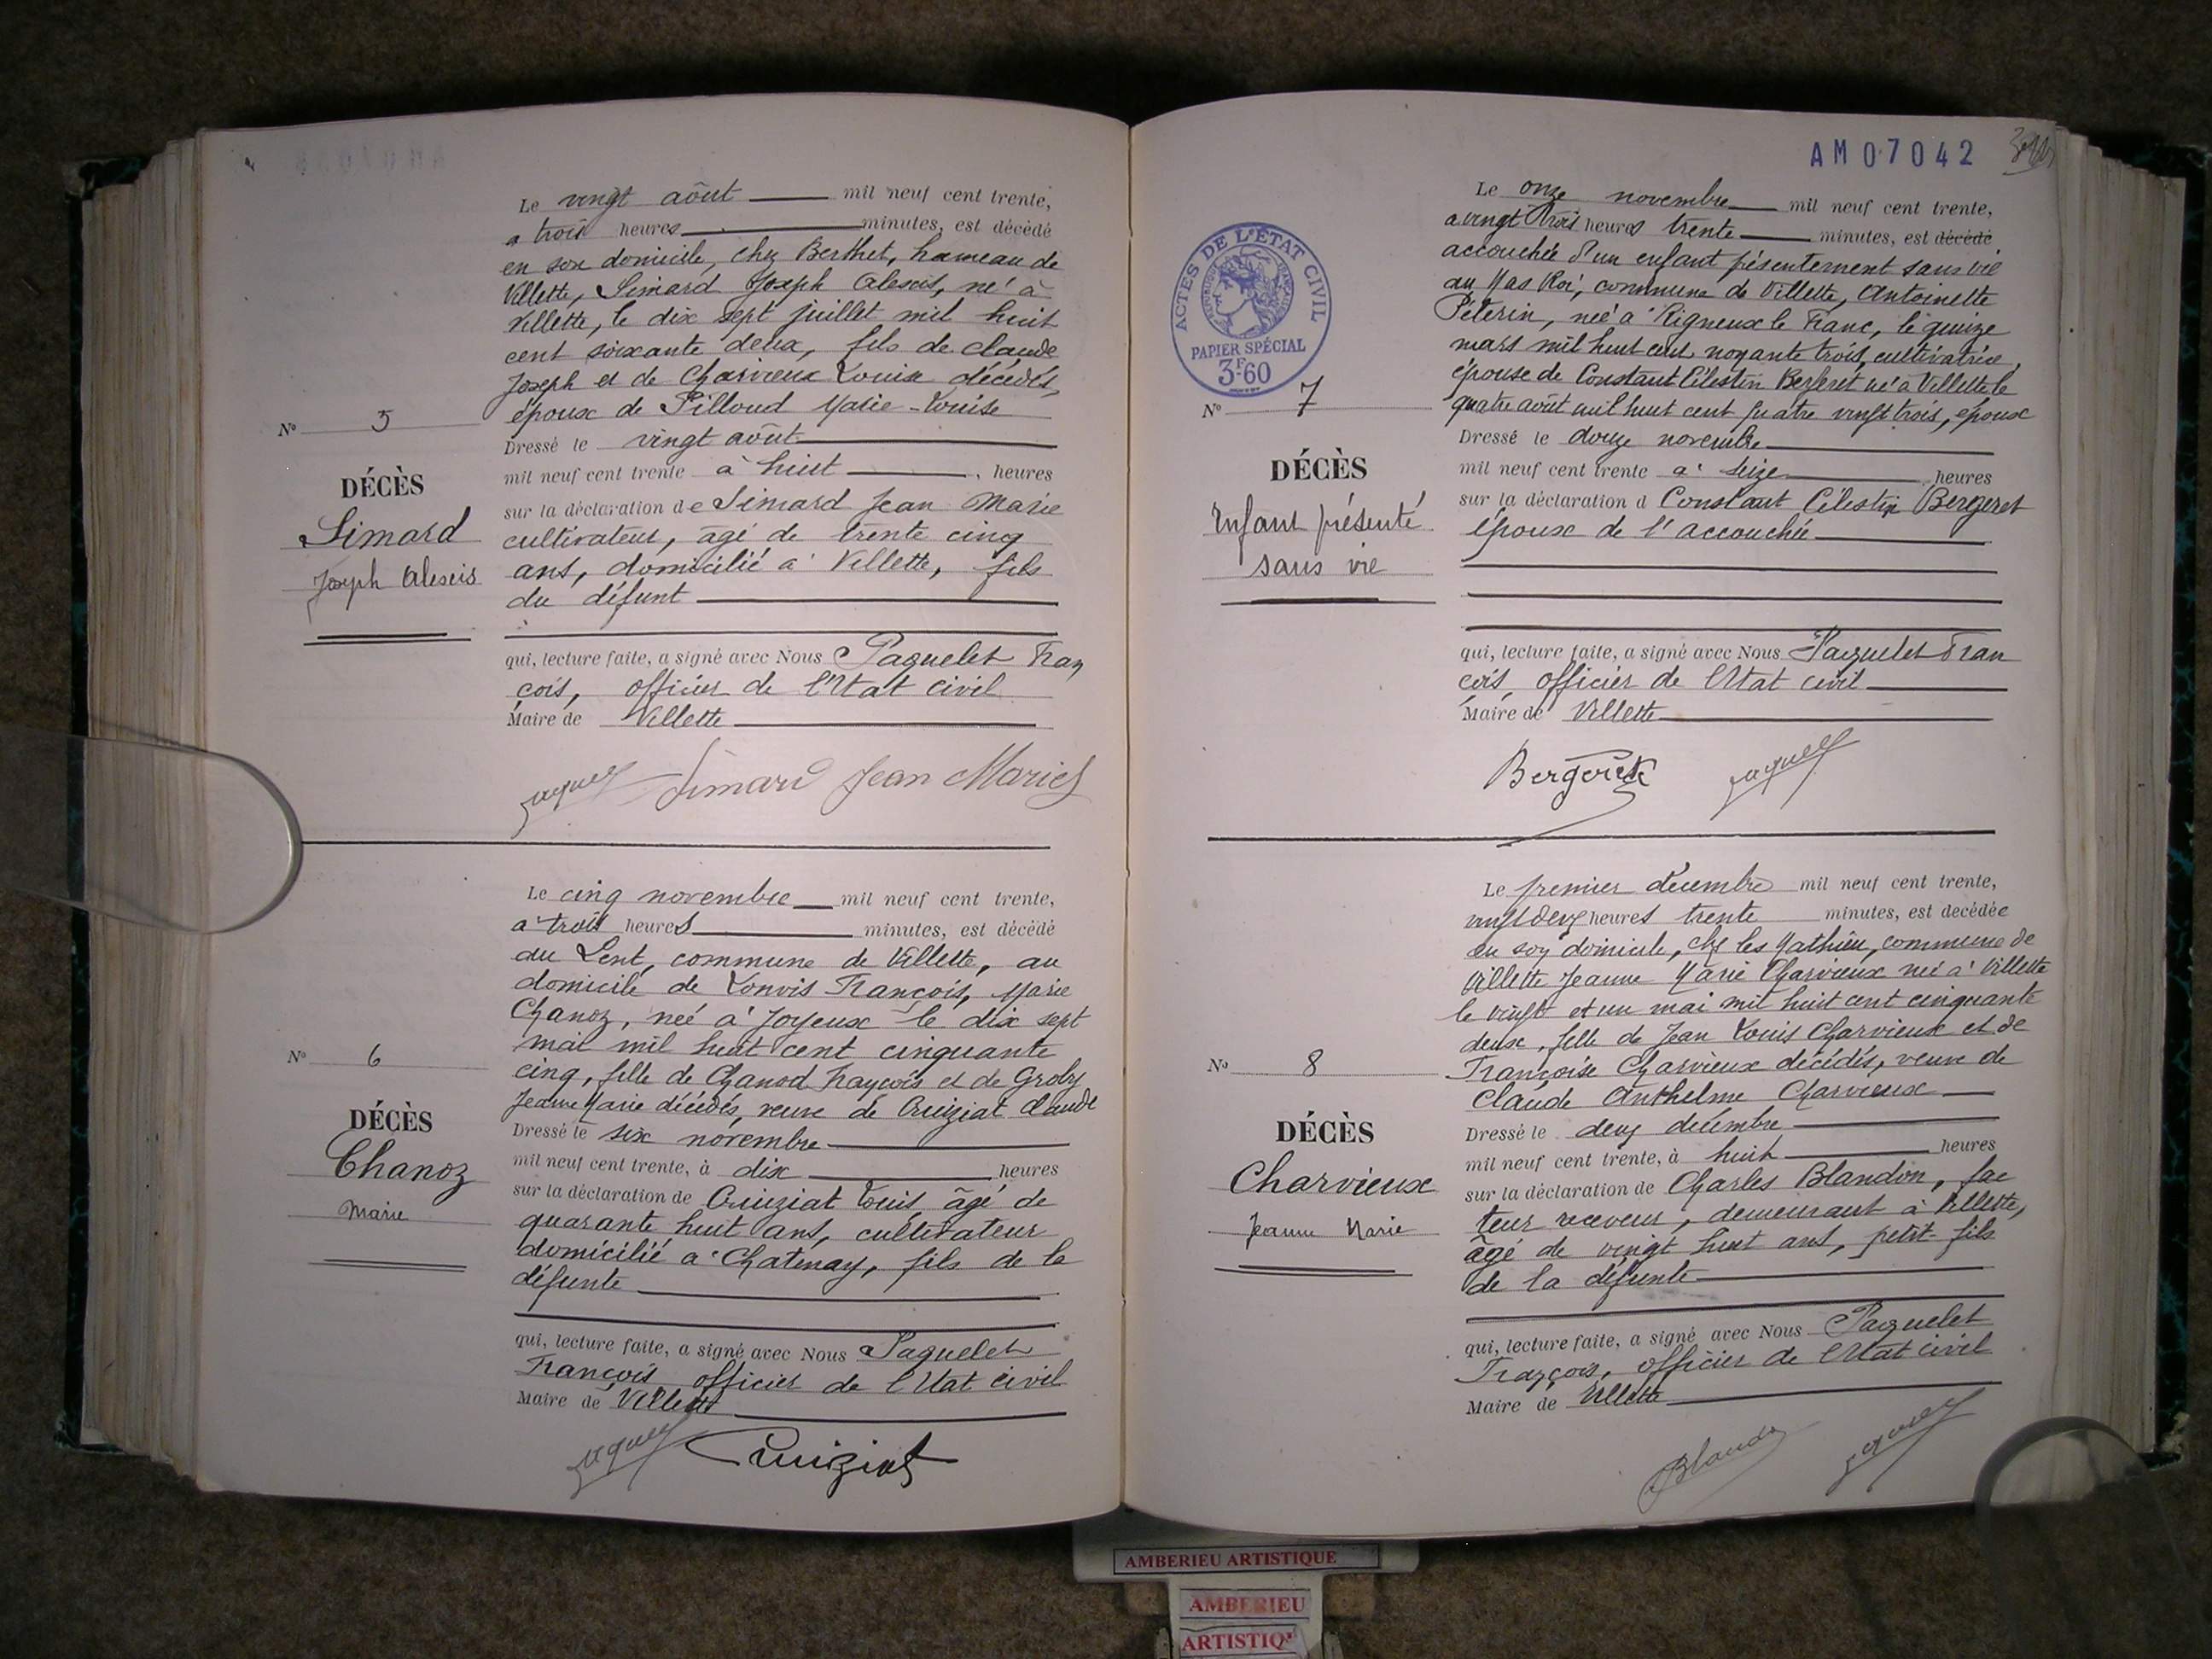 Le vingt août mil neuf cent trente,
a trois heures minutes, est décédé
en son domicile, chez Berthet, hameau de
Villette, Simard Joseph Alexis, né à
Villette, le dix sept juillet mil huit
cent soixante deux, fils de Claude
Joseph et de Charvieux Louise décédés,
époux de Pilloud Marie-Louise
Nº 5
Dressé le vingt août
mil neuf cent trente à huit heures
DÉCÈS
Simard
Joseph Alexis
sur la déclaration de Simard Jean Marie
cultivateur, âgé de trente cinq
ans, domicilié à Villette, fils
du défunt
qui, lecture faite, a signé avec Nous Paquelet Fran
çois, officier de l'Etat civil
Maire de Villette
Simard Jean Marie
Le cinq novembre mil neuf cent trente,
à trois heures minutes, est décédé
au Lent, commune de Villette, au
domicile de Convis François, Marie
Chanoz, née à Joyeux le dix sept
mai mil huit cent cinquante
cinq, fille de Chanod François et de Groby
Jeanne Marie décédés, veuve de Cruiziat Claude
Nº 6
DÉCÈS
Chanoz
Marie
Dressé le six novembre
mil neuf cent trente, à dix heures
sur la déclaration de Cruiziat Louis, âgé de
quarante huit ans, cultivateur
domicilié à Chatenay, fils de la
défunte
qui, lecture faite, a signé avec Nous Paquelet
François officier de l'Etat civil
Maire de Villette
Cruiziat
AM07042
Le onze novembre mil neuf cent trente,
a vingt trois heures trente minutes, est décédé
accouchée d'un enfant présentement sans vie
au Mas Roi, commune de Villette, Antoinette
Péterin, née à Rigneux le Franc, le quinze
mars mil huit cent noyante trois, cultivatrice,
épouse de Constant Célestin Bergeret né à Villette le
quatre août mil huit cent quatre vingt trois, époux
ACTES DE L'ÉTAT CIVIL
PAPIER SPÉCIAL
3F60
Nº 7
DÉCÈS
Enfant présenté
sans vie
Dressé le douze novembre
mil neuf cent trente à seize heures
sur la déclaration d Constant Célestin Bergeret
époux de l'accouchée
qui, lecture faite, a signé avec Nous Paquelet Fran
çois officier de l'Etat civil
Maire de Villette
Bergeret
Le premier décembre mil neuf cent trente,
vingt deux heures trente minutes, est décédée
en son domicile, chez les Mathieu, commune de
Villette Jeanne Marie Charvieux née à Villette
le vingt et un mai mil huit cent cinquante
deux, fille de Jean Louis Charvieux et de
Françoise Charvieux décédés, veuve de
Claude Anthelme Charvieux
Nº 8
DÉCÈS
Charvieux
Jeanne Marie
Dressé le deux décembre
mil neuf cent trente, à huit heures
sur la déclaration de Charles Blandon, fac
teur receveur, demeurant à Villette,
âgé de vingt huit ans, petit-fils
de la défunte
qui, lecture faite, a signé avec Nous Paquelet
François, officier de l'Etat civil
Maire de Villette
Blandon
AMBERIEU ARTISTIQUE
AMBERIEU
ARTISTIQ